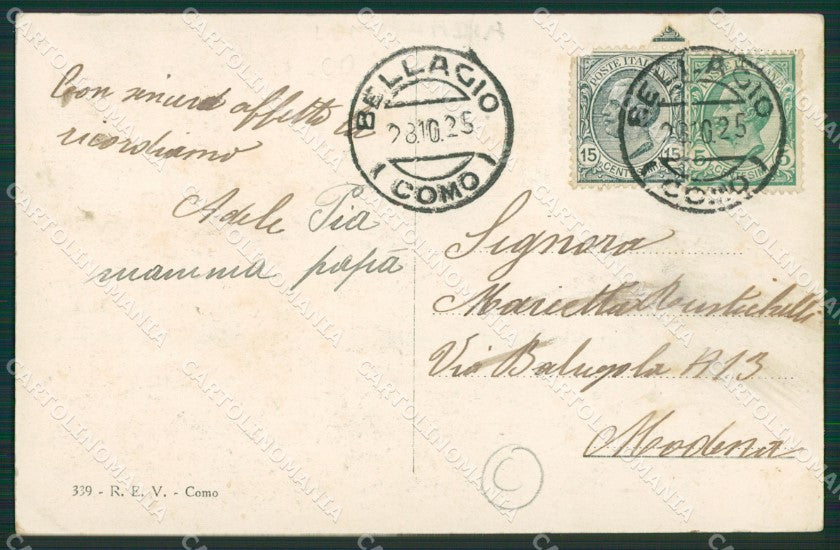 Con sincero affetto vi
ricordiamo
Adele Pia
mamma papà
339 - R. E. V. - Como
BELLAGIO
28.10.25
(COMO)
POSTE ITALIANE
15 CENTESIMI 15
BELLAGIO
28.10.25
(COMO)
5
Signora
Marietta
Via Balugola N 13
Modena
C
CARTOLINOMANIA